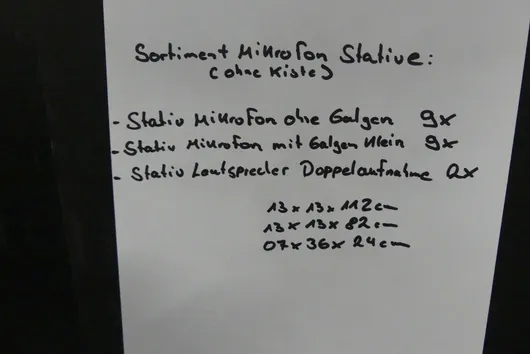 Sortiment Mikrofon Stative:
(ohne Kiste)
- Stativ Mikrofon ohne Galgen 9x
- Stativ Mikrofon mit Galgen Klein 9x
- Stativ Lautsprecher Doppelaufnahme 2x
13 x 13 x 112 cm
13 x 13 x 82 cm
07 x 36 x 24 cm